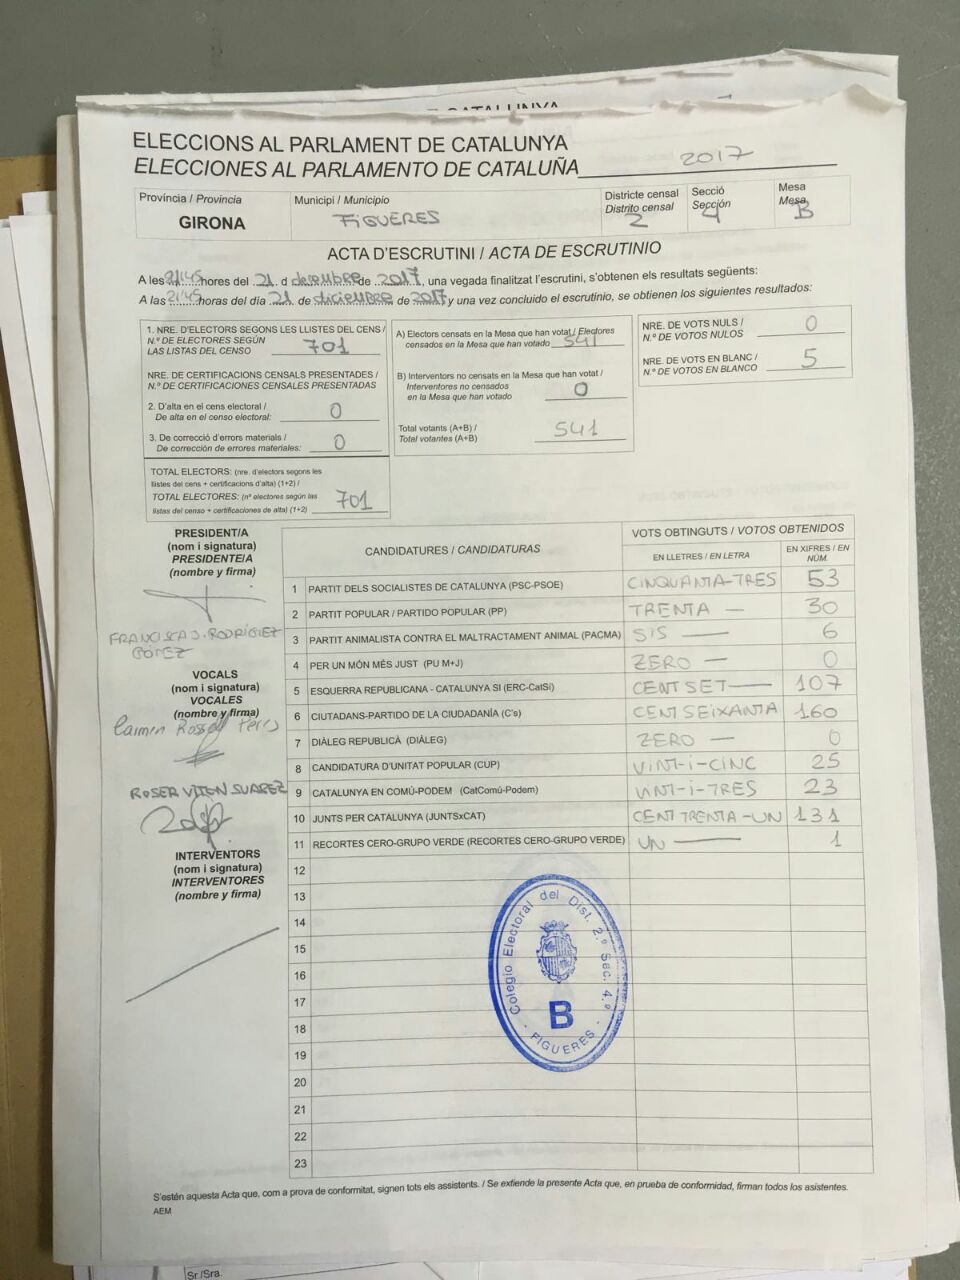 E CATALUNYA
ELECCIONS AL PARLAMENT DE CATALUNYA
ELECCIONES AL PARLAMENTO DE CATALUÑA 2017
Província / Provincia
GIRONA
Municipi / Municipio
FIGUERES
Districte censal
Distrito censal
2
Secció
Sección
4
Mesa
Mesa
B
ACTA D'ESCRUTINI / ACTA DE ESCRUTINIO
A les 21:45 hores del 21 d desembre de 2017, una vegada finalitzat l'escrutini, s'obtenen els resultats següents:
A las 21:45 horas del día 21 de diciembre de 2017 y una vez concluido el escrutinio, se obtienen los siguientes resultados:
1. NRE. D'ELECTORS SEGONS LES LLISTES DEL CENS /
N.º DE ELECTORES SEGÚN
LAS LISTAS DEL CENSO 701
NRE. DE CERTIFICACIONS CENSALS PRESENTADES /
N.º DE CERTIFICACIONES CENSALES PRESENTADAS
2. D'alta en el cens electoral /
De alta en el censo electoral: 0
3. De correcció d'errors materials /
De corrección de errores materiales: 0
TOTAL ELECTORS: (nre. d'electors segons les
llistes del cens + certificacions d'alta) (1+2) /
TOTAL ELECTORES: (nº electores según las
listas del censo + certificaciones de alta) (1+2) 701
A) Electors censats en la Mesa que han votat / Electores
censados en la Mesa que han votado 541
B) Interventors no censats en la Mesa que han votat /
Interventores no censados
en la Mesa que han votado 0
Total votants (A+B) /
Total votantes (A+B) 541
NRE. DE VOTS NULS /
N.º DE VOTOS NULOS 0
NRE. DE VOTS EN BLANC /
N.º DE VOTOS EN BLANCO 5
PRESIDENT/A
(nom i signatura)
PRESIDENTE/A
(nombre y firma)
FRANCISCA J. RODRÍGUEZ
GÓMEZ
VOCALS
(nom i signatura)
VOCALES
(nombre y firma)
ROSER VITON SUAREZ
INTERVENTORS
(nom i signatura)
INTERVENTORES
(nombre y firma)
CANDIDATURES / CANDIDATURAS
VOTS OBTINGUTS / VOTOS OBTENIDOS
EN LLETRES / EN LETRA
EN XIFRES / EN
NÚM.
1 PARTIT DELS SOCIALISTES DE CATALUNYA (PSC-PSOE) CINQUANTA-TRES 53
2 PARTIT POPULAR / PARTIDO POPULAR (PP) TRENTA — 30
3 PARTIT ANIMALISTA CONTRA EL MALTRACTAMENT ANIMAL (PACMA) SIS — 6
4 PER UN MÓN MÉS JUST (PU M+J) ZERO — 0
5 ESQUERRA REPUBLICANA - CATALUNYA SI (ERC-CatSí) CENT SET — 107
6 CIUTADANS-PARTIDO DE LA CIUDADANÍA (C's) CENT SEIXANTA 160
7 DIÀLEG REPUBLICÀ (DIÀLEG) ZERO — 0
8 CANDIDATURA D'UNITAT POPULAR (CUP) VINT-I-CINC 25
9 CATALUNYA EN COMÚ-PODEM (CatComú-Podem) VINT-I-TRES 23
10 JUNTS PER CATALUNYA (JUNTSxCAT) CENT TRENTA-UN 131
11 RECORTES CERO-GRUPO VERDE (RECORTES CERO-GRUPO VERDE) UN — 1
12
13
14
15
16
17
18
19
20
21
22
23
Colegio Electoral del Dist. 2.º Sec. 4.º
B
- FIGUERES -
S'estén aquesta Acta que, com a prova de conformitat, signen tots els assistents. / Se extiende la presente Acta que, en prueba de conformidad, firman todos los asistentes.
AEM
Sr./Sra.